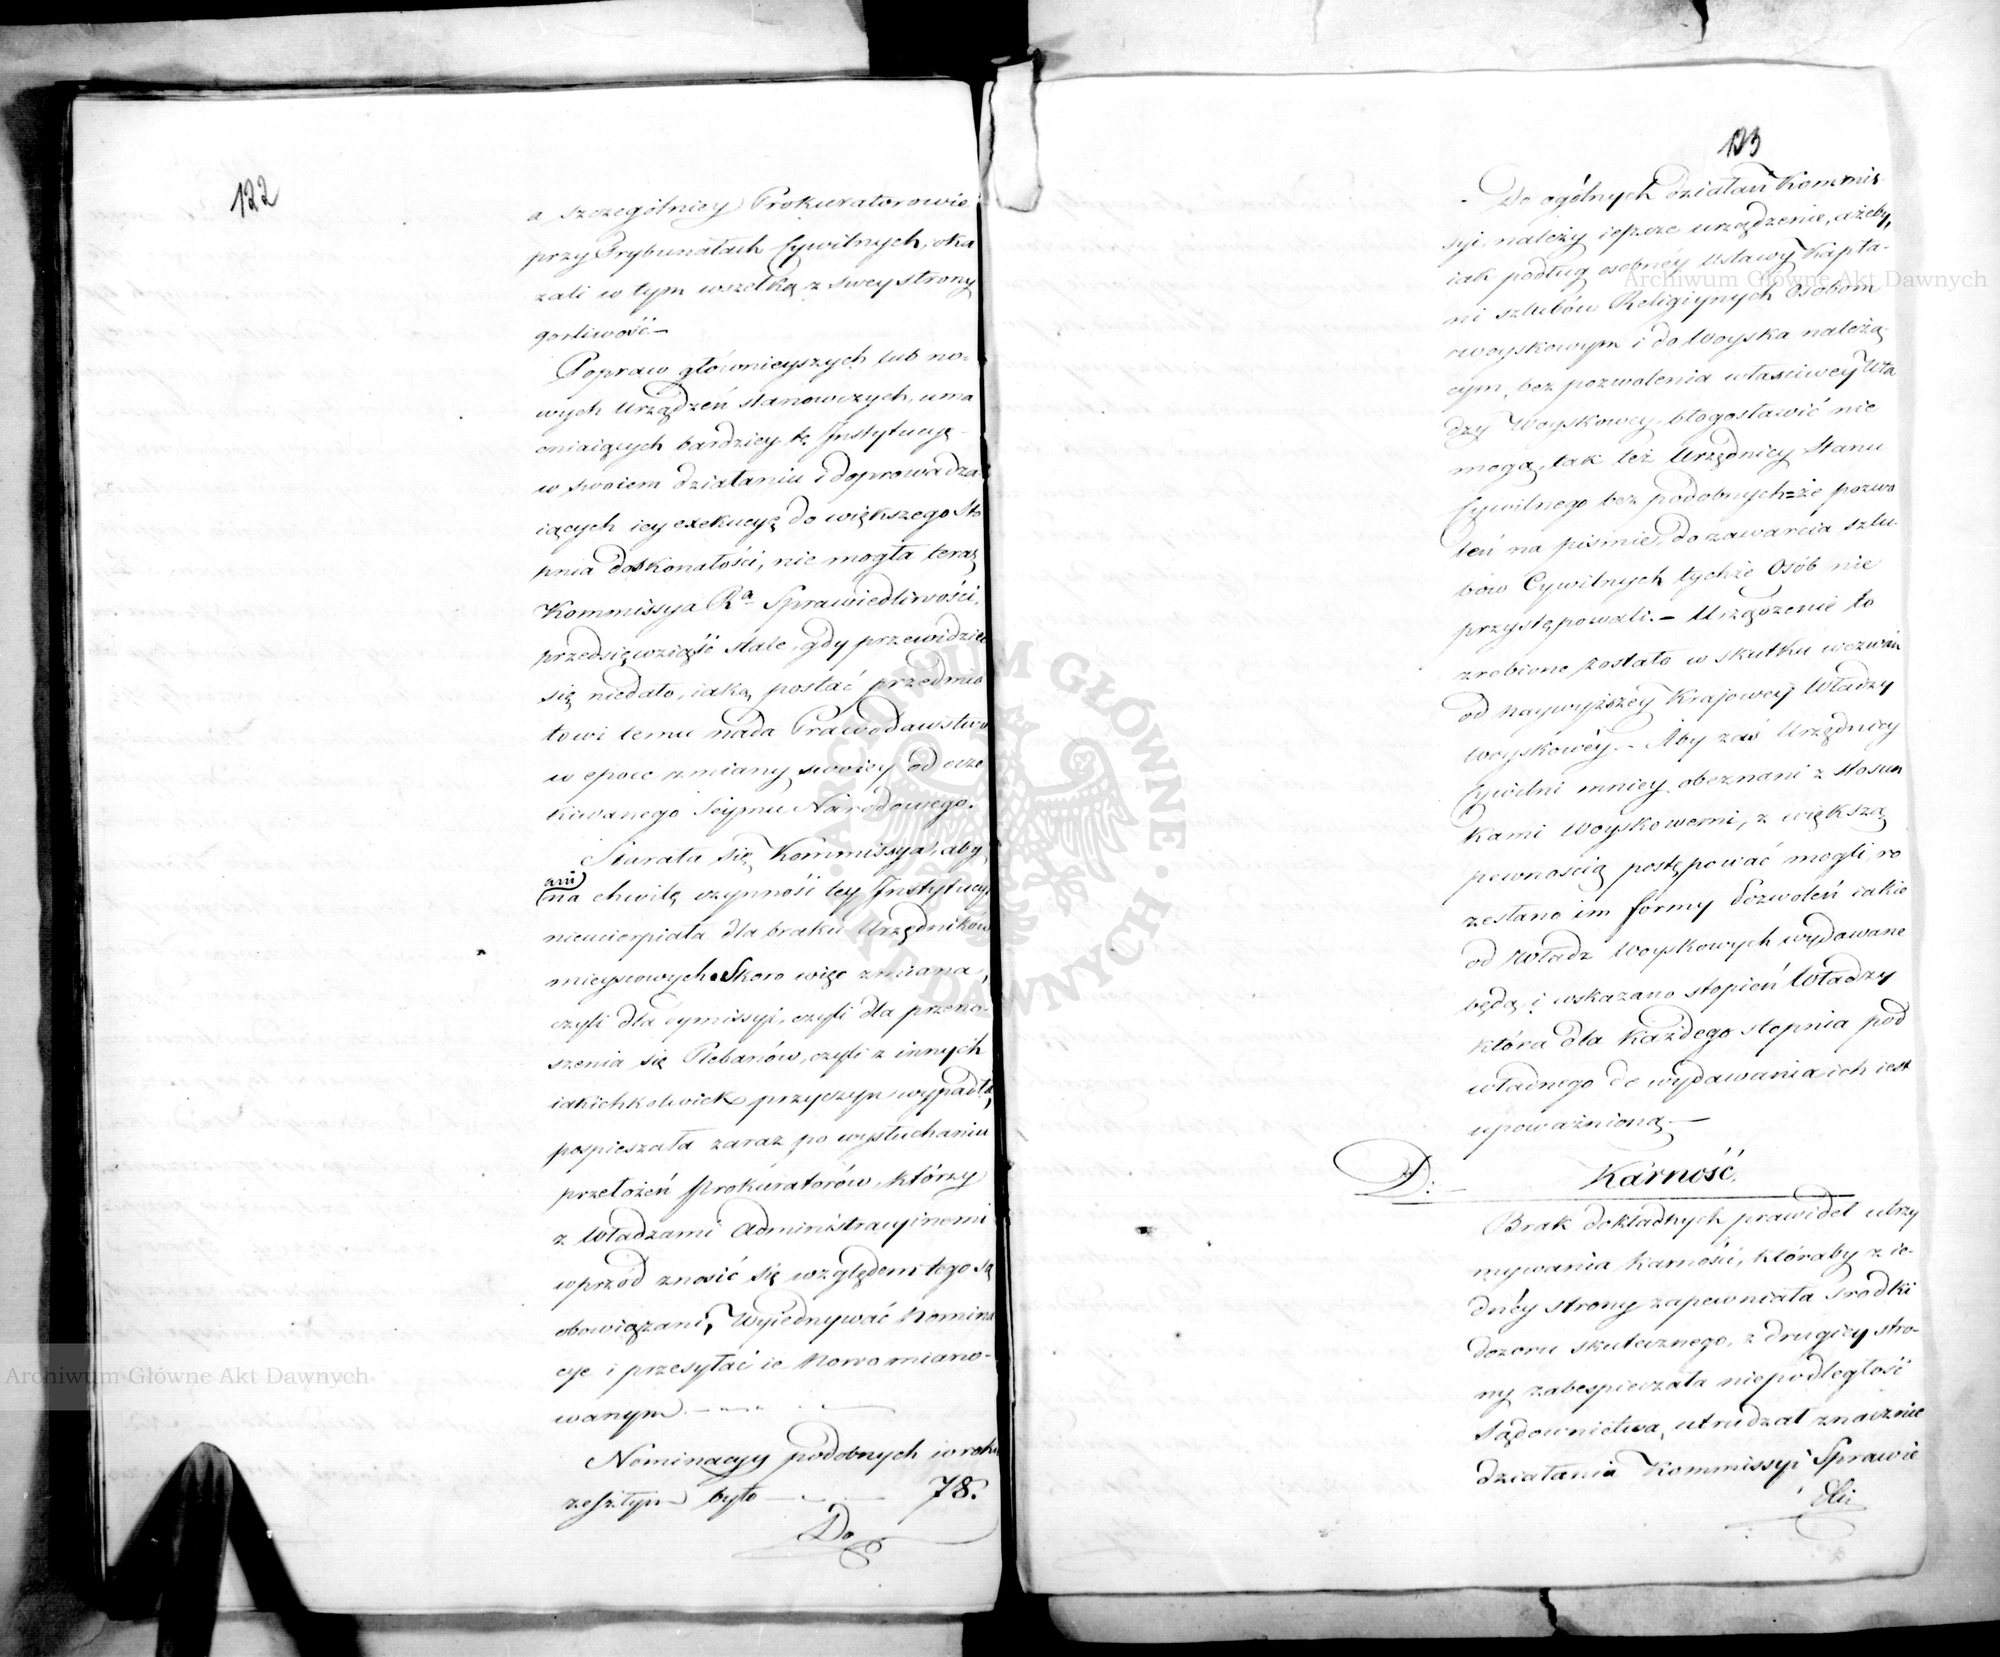 122
a szczególniey Prokuratorowie
przy Trybunałach Cywilnych, oka
zali w tym wszelką z swey strony
gorliwość.—
Popraw główniejszych lub no-
wych urządzeń stanowczych, uma
cniaiących bardziey tę Instytucyę
w swoiem działaniu i doprowadza
iących iey exekucyę do większego sto
pnia doskonałości, nie mogła teraz
Kommissya Rª Sprawiedliwości,
przedsięwziąść stale, gdy przewidzieć
się niedało, iaką postać przedmio
towi temu nada Prawodawstwo
w epoce zmiany swoiey od ocze
kiwanego Seymu Narodowego.
Starała się Kommissya, aby
ani
na chwilę czynność tey Instytucyi
nieucierpiała dla braku Urzędników
mieyscowych. Skoro więc zmiana,
czyli dla dymissyi, czyli dla przeno-
szenia się Plebanów, czyli z innych
iakichkolwiek przyczyn wypadła,
pospieszała zaraz po wysłuchaniu
przełożeń Prokuratorów, którzy
z Władzami Administracyinemi
wprzód znosić się względem tego są
obowiązani, Wyiednywać Nomina
cye i przesyłać ie Nowo miano-
wanym.—
Nominacyy podobnych w roku
zeszłym było — 78.
Do
123
Do ogólnych działań Kommis-
syi należy ieszcze urządzenie, ażeby,
iak podług osobney ustawy Kapła-
ni szlubów Religiynych Osobom
woyskowym i do Woyska należą-
cym, bez pozwolenia właściwey Wła
dzy Woyskowey błogosławić nie
mogą, tak też Urzędnicy Stanu
Cywilnego bez podobnych=że pozwo
leń na piśmie, do zawarcia szlu-
bów Cywilnych tychże Osób nie
przystępowali.— Urządzenie to
zrobione zostało w skutku wezwań
od naywyższey Krajowey Władzy
Woyskowéy.— Aby zaś Urzędnicy
Cywilni mniey obeznani z stosun
kami Woyskowemi, z większą
pewnością postępować mogli, ro
zesłano im formy Pozwoleń iakie
od Władz Woyskowych wydawane
będą, i wskazano stopień Władzy
która dla każdego stopnia pod
władnego do wydawania ich iest
upoważnioną.—
D:— Karność.
Brak dokładnych prawideł utrzy
mywania karności, któraby z ie-
dnéy strony zapewniała środki
dozoru skutecznego, z drugiey stro-
ny zabespieczała niepodległość
Sądownictwa, utrudzał znacznie
działania Kommissyi Sprawie
dli
Archiwum Główne Akt Dawnych
Archiwum Główne Akt Dawnych
ARCHIWUM GŁÓWNE AKT DAWNYCH